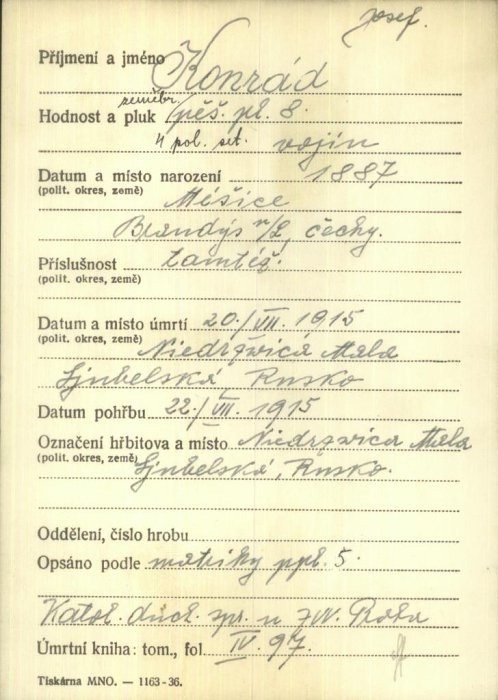 Josef.
Příjmení a jméno Konrád
zeměbr.
Hodnost a pluk pěš. pl. 8.
4 pol. set. vojín
Datum a místo narození 1887
(polit. okres, země) Měšice
Brandýs n/L, čechy.
Příslušnost tamtéž.
(polit. okres, země)
Datum a místo úmrtí 20./VII. 1915
(polit. okres, země) Niedrzwica Mala
Ljubelská, Rusko
Datum pohřbu 22./VII. 1915
Označení hřbitova a místo Niedrzwica Mala
(polit. okres, země) Ljubelská, Rusko.
Oddělení, číslo hrobu
Opsáno podle matriky ppl. 5.
Katol. duch. zpr. u
Úmrtní kniha: tom., fol IV. 97.
Tiskárna MNO. — 1163-36.